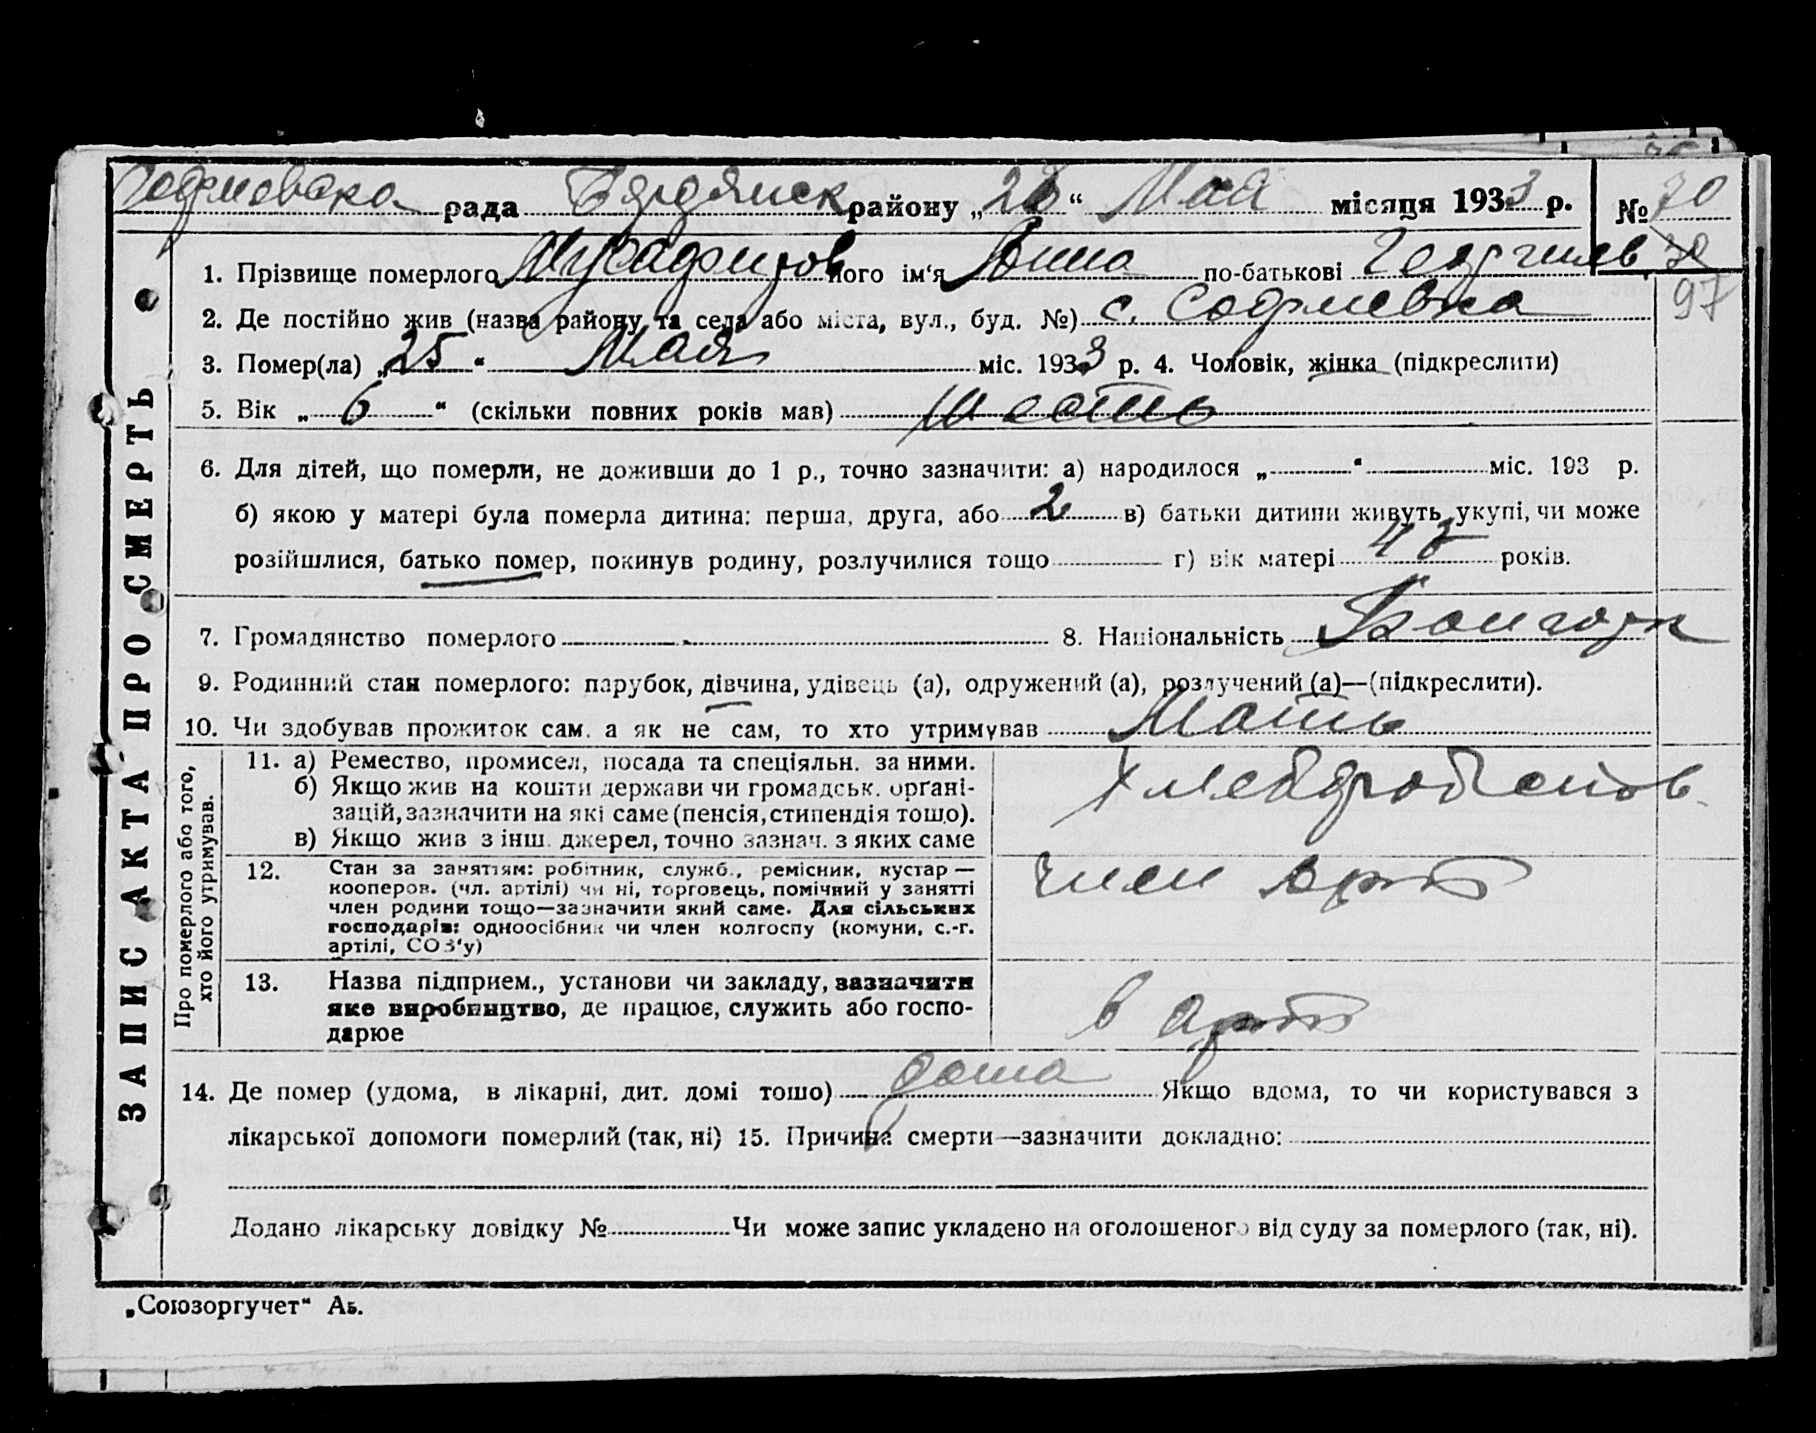 Софиевска рада Бердянск району „28“ Мая місяця 1933 р. № 70
1. Прізвище померлого Мусафиров його ім‘я Анна по-батькові Георгиев 70
2. Де постійно жив (назва району та села або міста, вул., буд. №) с. Софиевка 97
3. Помер(ла) „25“ Мая міс. 1933 р. 4. Чоловік, жінка (підкреслити)
5. Вік „6“ (скільки повних років мав) Шесть
6. Для дітей, що померли, не доживши до 1 р., точно зазначити: а) народилося „ “ міс. 193 р.
б) якою у матері була померла дитина: перша, друга, або 2 в) батьки дитини живуть укупі, чи може
розійшлися, батько помер, покинув родину, розлучилися тощо г) вік матері 43 років.
7. Громадянство померлого - 8. Національність Болгарк
9. Родинний стан померлого: парубок, дівчина, удівець (а), одружений (а), розлучений (а)—(підкреслити).
10. Чи здобував прожиток сам, а як не сам, то хто утримував Мать
ЗАПИС АКТА ПРО СМЕРТЬ
Про померлого або того,
хто його утримував.
11. а) Ремество, промисел, посада та спеціяльн. за ними.
б) Якщо жив на кошти держави чи громадськ. орґані-
зацій, зазначити на які саме (пенсія, стипендія тошо).
в) Якщо жив з інш. джерел, точно зазнач. з яких саме
Хлеборобством
12. Стан за занятіям: робітник, служб., ремісник, кустар —
кооперов. (чл. артілі) чи ні, торговець, помічний у занятті
член родини тощо—зазначити який саме. Для сільських
господарів: одноосібник чи член колгоспу (комуни, с.-г.
артілі, СОЗ‘у)
член арт
13. Назва підприєм., установи чи закладу, зазначити
яке виробництво, де працює, служить або госпо-
дарює
в арт
14. Де помер (удома, в лікарні, дит. домі тошо) дома Якщо вдома, то чи користувався з
лікарської допомоги померлий (так, ні) 15. Причина смерти—зазначити докладно:
Додано лікарську довідку № Чи може запис укладено на оголошеного від суду за померлого (так, ні).
„Союзоргучет“ Аь.